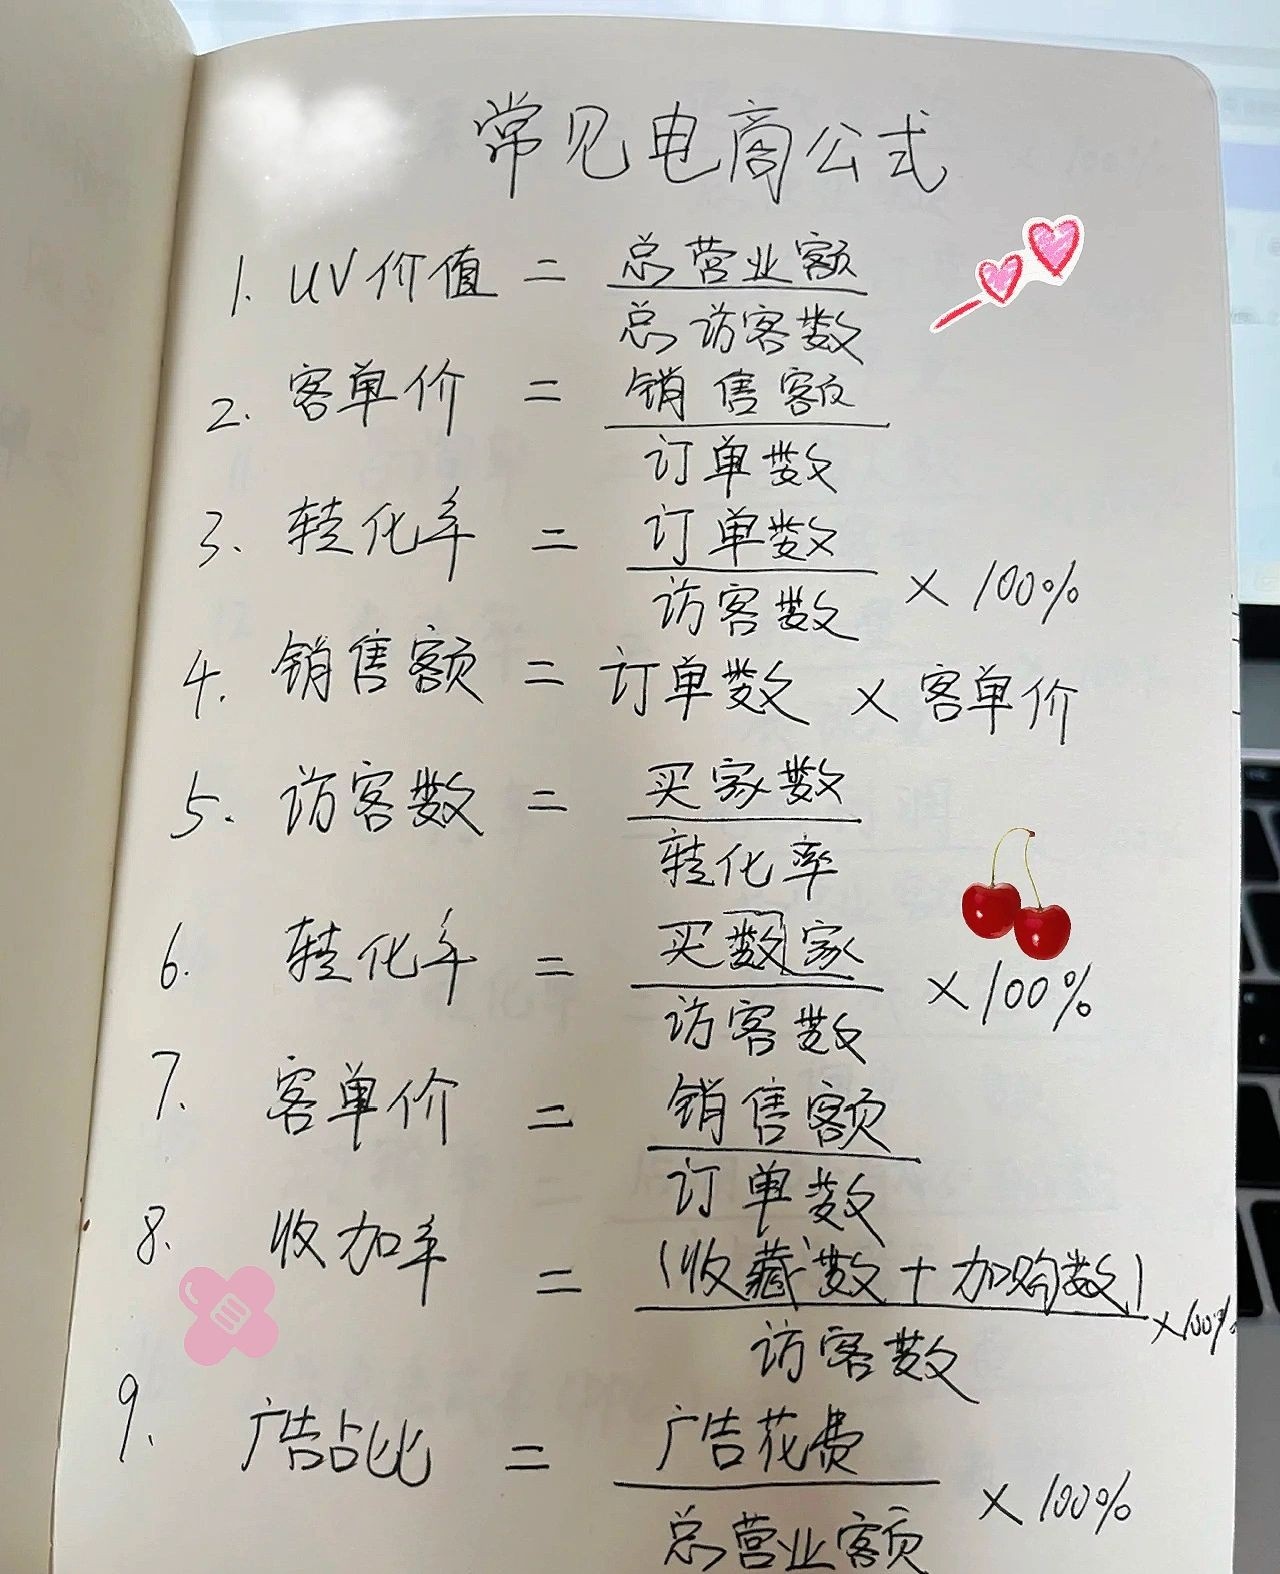 常见电商公式
1. UV价值 = 总营业额
总访客数
2. 客单价 = 销售额
订单数
3. 转化率 = 订单数
访客数 × 100%
4. 销售额 = 订单数 × 客单价
5. 访客数 = 买家数
转化率
6. 转化率 = 买数家
访客数 × 100%
7. 客单价 = 销售额
订单数
8. 收加率 = (收藏数 + 加购数) × 100%
访客数
9. 广告占比 = 广告花费
总营业额 × 100%